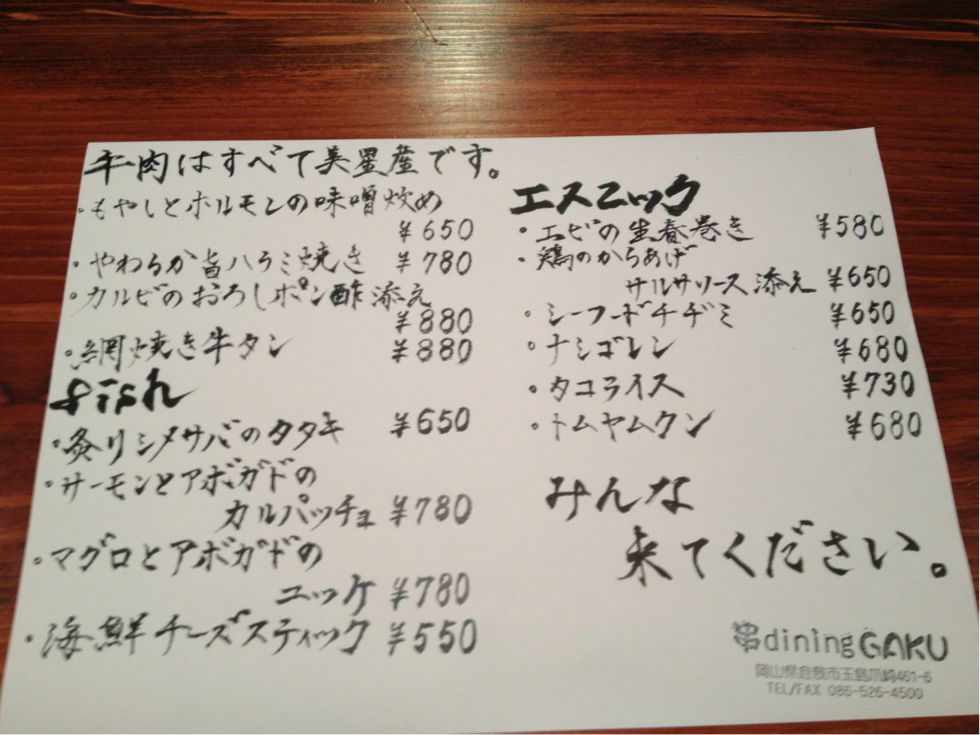 牛肉はすべて美星産です。
・もやしとホルモンの味噌炒め
¥650
・やわらか旨ハラミ焼き ¥780
・カルビのおろしポン酢添え
¥880
・網焼き牛タン ¥880
fish
・炙りシメサバのタタキ ¥650
・サーモンとアボガドの
カルパッチョ ¥780
・マグロとアボガドの
ユッケ ¥780
・海鮮チーズスティック ¥550
エスニック
・エビの生春巻き ¥580
・鶏のからあげ
サルサソース添え ¥650
・シーフードチヂミ ¥650
・ナシゴレン ¥680
・タコライス ¥730
・トムヤムクン ¥680
みんな
来てください。
串dining GAKU
岡山県倉敷市玉島爪崎461-6
TEL/FAX 086-526-4500